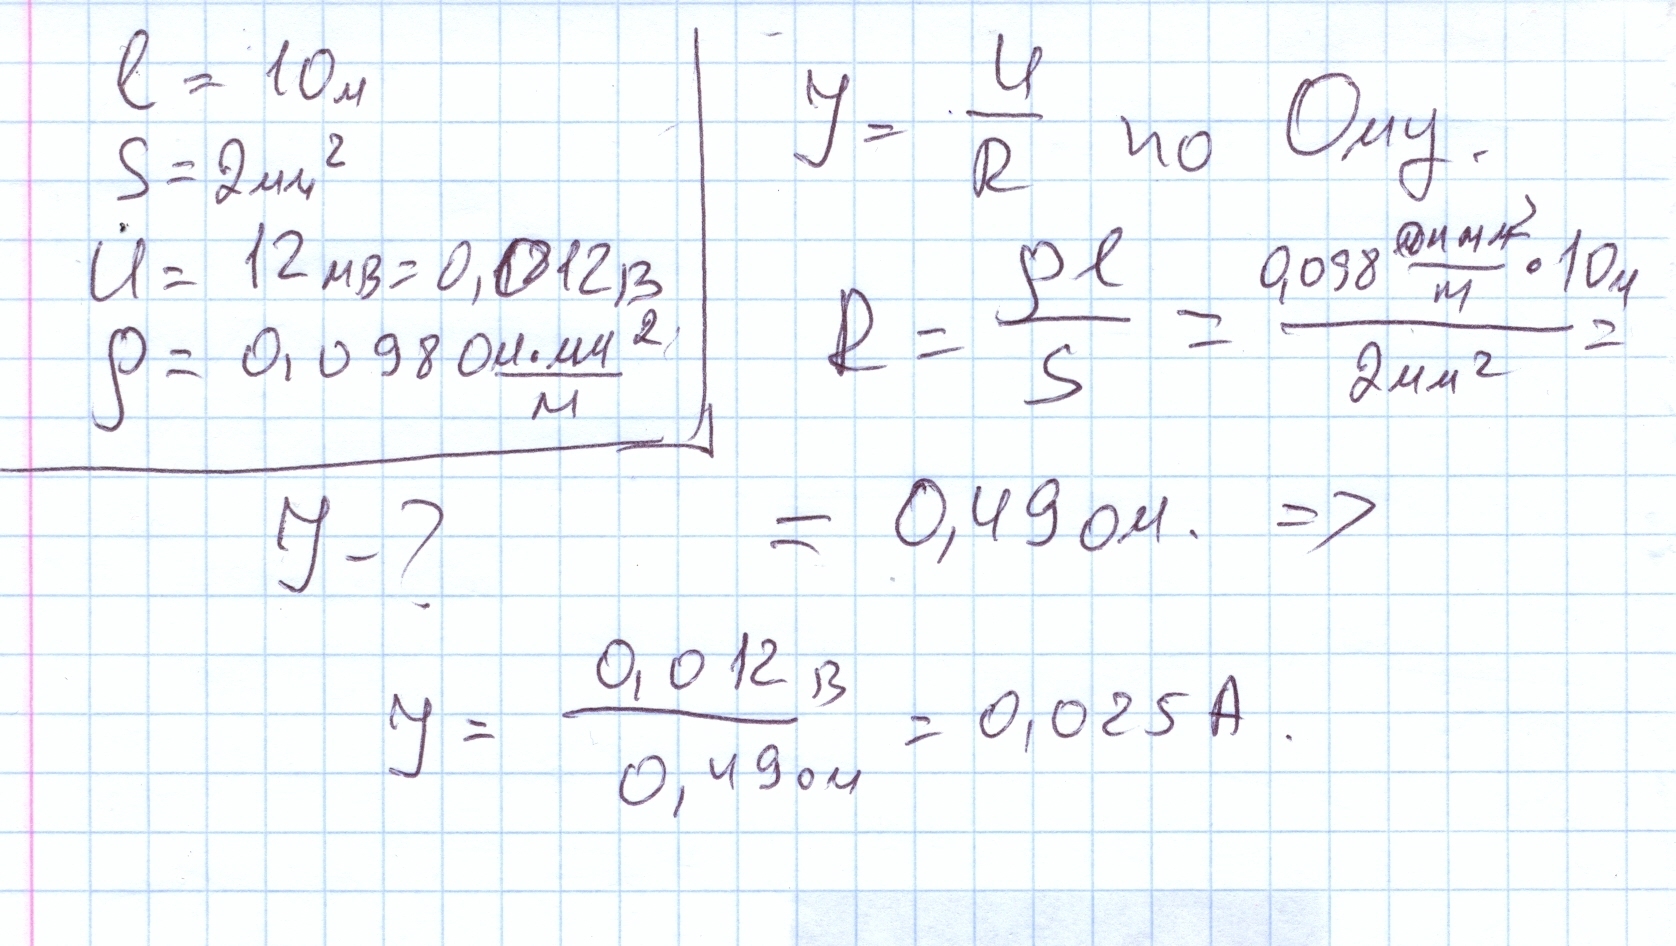 l = 10м
S = 2мм²
U = 12мВ = 0,012В
ρ = 0,098 Ом·мм²/м
J - ?
J = U/R по Ому.
R = ρl/S = 0,098 Ом мм²/м · 10м / 2мм² =
= 0,49 Ом. =>
J = 0,012В / 0,49 Ом = 0,025 А.